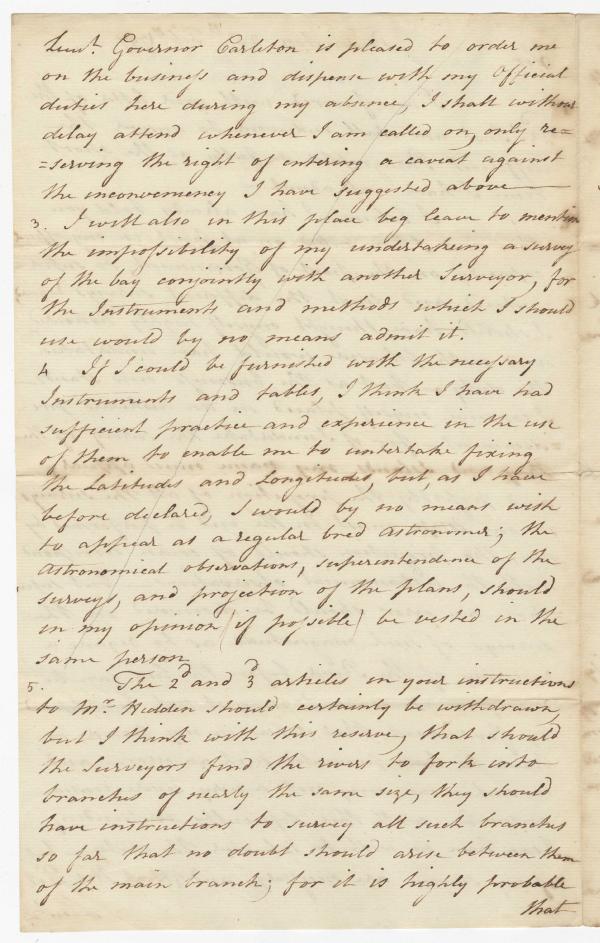 Lieut. Governor Carleton is pleased to order me
on the business and dispense with my Official
duties here during my absence, I shall without
delay attend whenever I am called on, only re=
=serving the right of entering a caveat against
the inconveniency I have suggested above
3. I will also in this place beg leave to mention
the impossibility of my undertaking a survey
of the bay conjointly with another Surveyor, for
the Instruments and methods which I should
use would by no means admit it.
4 If I could be furnished with the necessary
Instruments and tables, I think I have had
sufficient practice and experience in the use
of them to enable me to undertake fixing
the Latitudes and Longitudes, but, as I have
before declared, I would by no means wish
to appear as a regular bred Astronomer; the
Astronomical observations, superintendence of the
surveys, and projection of the plans, should
in my opinion (if possible) be vested in the
same person
5. The 2d and 3d articles in your instructions
to Mr. Hedden should certainly be withdrawn,
but I think with this reserve, that should
the Surveyors find the rivers to fork into
branches of nearly the same size, they should
have instructions to survey all such branches
so far that no doubt should arise between them
of the main branch; for it is highly probable
that